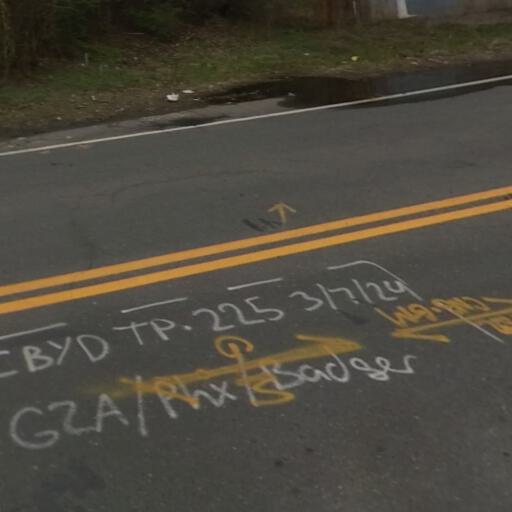 CBYD TP. 225 3/7/24
GZA/Phx/Badger